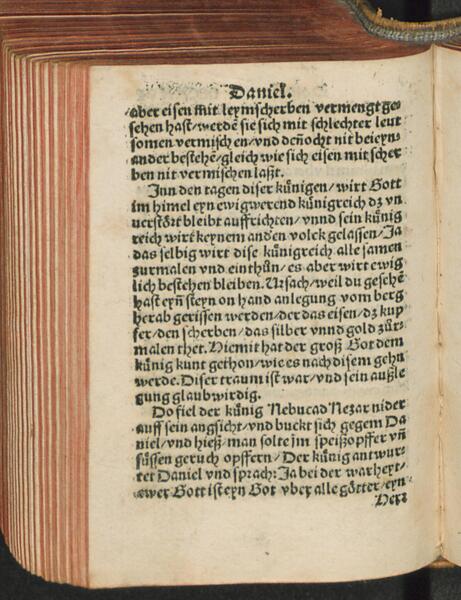 Daniel.
aber eisen mit leymscherben vermengt ge⸗
sehen hast/werdẽ sie sich mit schlechter leut
somen vermischen/vnd deñocht nit beieyn⸗
ander bestehẽ/gleich wie sich eisen mit scher
ben nit vermischen laßt.
Inn den tagen diser künigen/wirt Gott
im himel eyn ewigwerend künigreich dz vn
uerstört bleibt auffrichten/vnnd sein künig
reich wirt keynem andẽn volck gelassen/Ja
das selbig wirt dise künigreich alle samen
zurmalen vnd einthůn/es aber wirt ewig
lich bestehen bleiben. Ursach/weil du gesehẽ
hast eyñ steyn on hand anlegung vom berg
herab gerissen werden/der das eisen/dz kup
fer/den scherben/das silber vnnd gold zůr⸗
malen thet. Hiemit hat der groß Got dem
künig kunt gethon/wie es nach disem gehn
werde. Diser traum ist war/vnd sein außle
gung glaubwirdig.
Do fiel der künig Nebucad Nezar nider
auff sein angsicht/vnd buckt sich gegem Da
niel/vnd hieß/man solte im speißopffer vñ
süssen geruch opffern/Der künig antwur⸗
tet Daniel vnd sprach: Ja bei der warheyt/
ewer Gott ist eyn Got vber alle götter/eyn
Herr